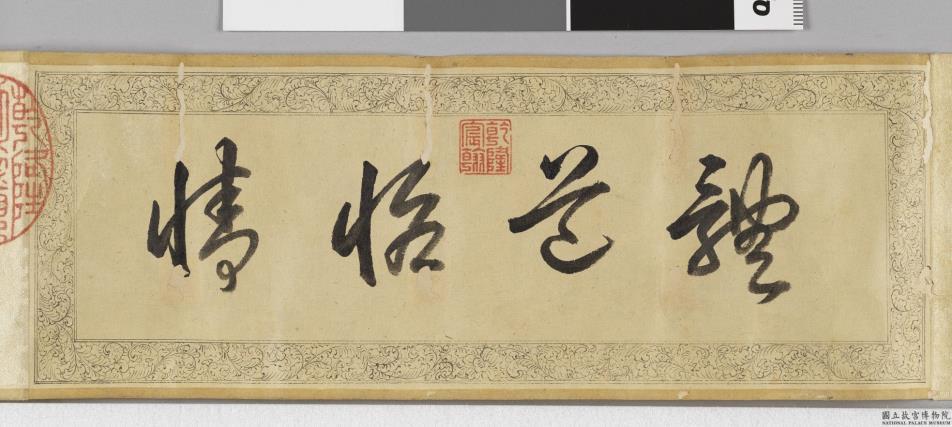 體道怡情
乾隆宸翰
國立故宮博物院
NATIONAL PALACE MUSEUM